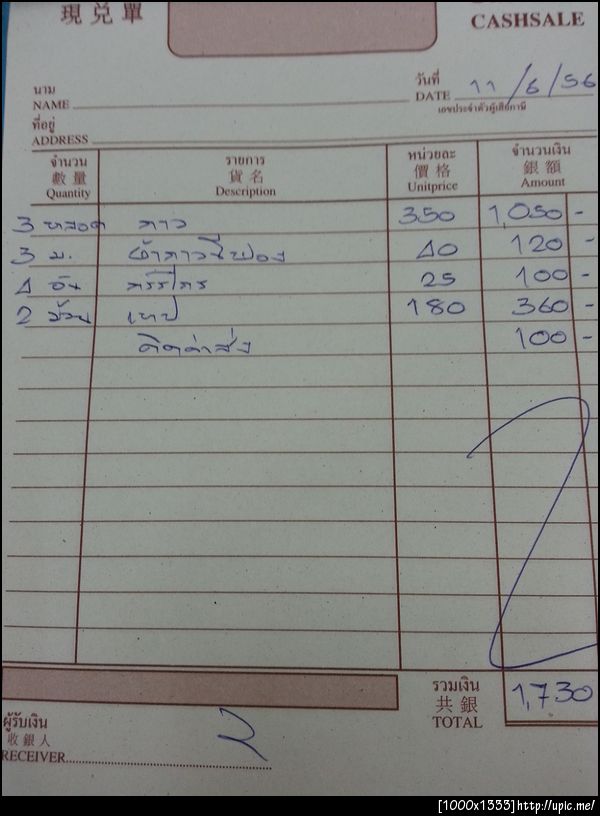 現兑單 CASHSALE
นาม
NAME
วันที่
DATE 11/6/56
เลขประจำตัวผู้เสียภาษี
ที่อยู่
ADDRESS
จำนวน รายการ หน่วยละ จำนวนเงิน
數量 貨名 價格 銀額
Quantity Description Unitprice Amount
3 หลอด กาว 350 1,050 -
3 ม. 40 120 -
4 อัน กรรไกร 25 100 -
2 ม้วน เทป 180 360 -
คิดค่าส่ง 100 -
รวมเงิน
共銀
TOTAL 1,730
ผู้รับเงิน
收銀人
RECEIVER
[1000x1333]http://upic.me/